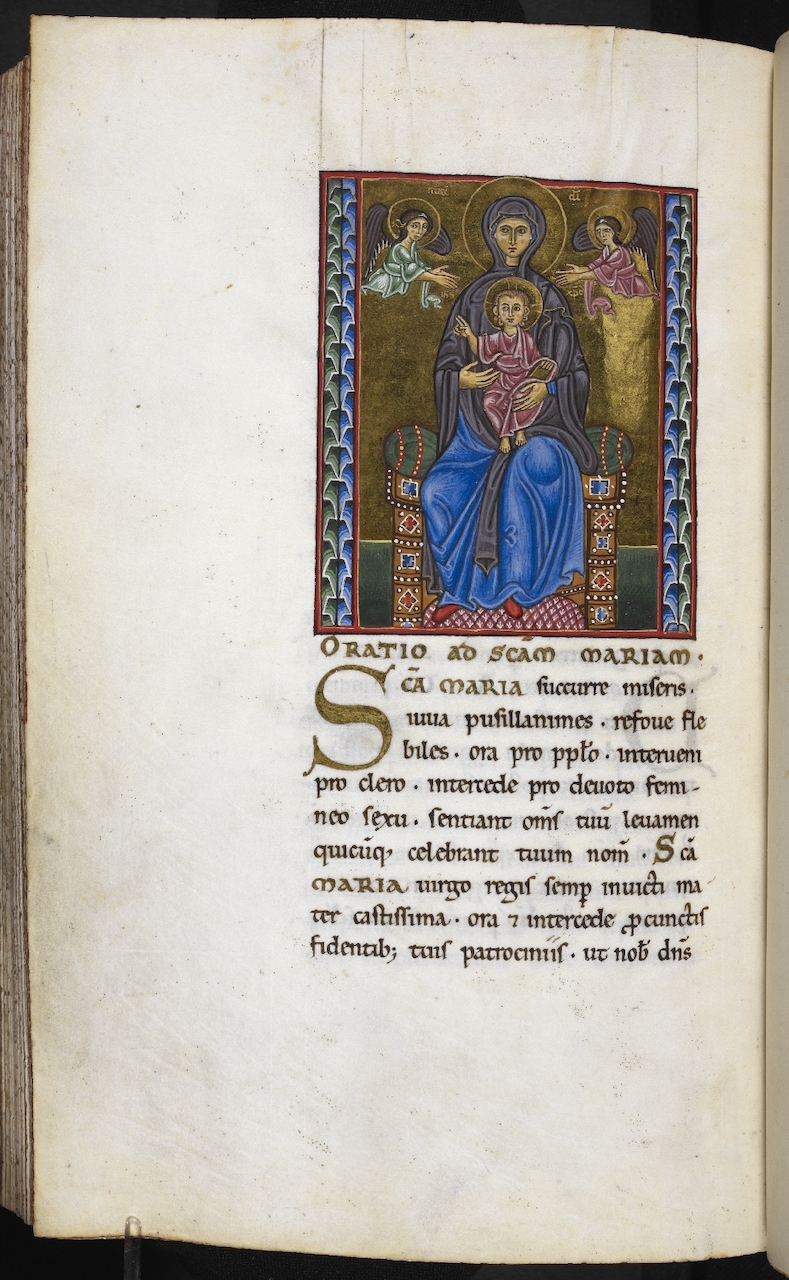 ORATIO AD SCĀM MARIAM ·
SCĀ MARIA succurre miseris ·
iuua pusillanimes · refoue fle
biles · ora pro ppło · interueni
pro clero · intercede pro deuoto femi-
neo sęxu · sentiant om̄s tuū leuamen
quicūq; celebrant tuum nom̄ · Scā
MARIA uirgo regis semp̲ inuicti ma
ter castissima · ora ⁊ intercede ꝓ cunctis
fidentib; tuis patrociniis · ut nob̄ dn̄s